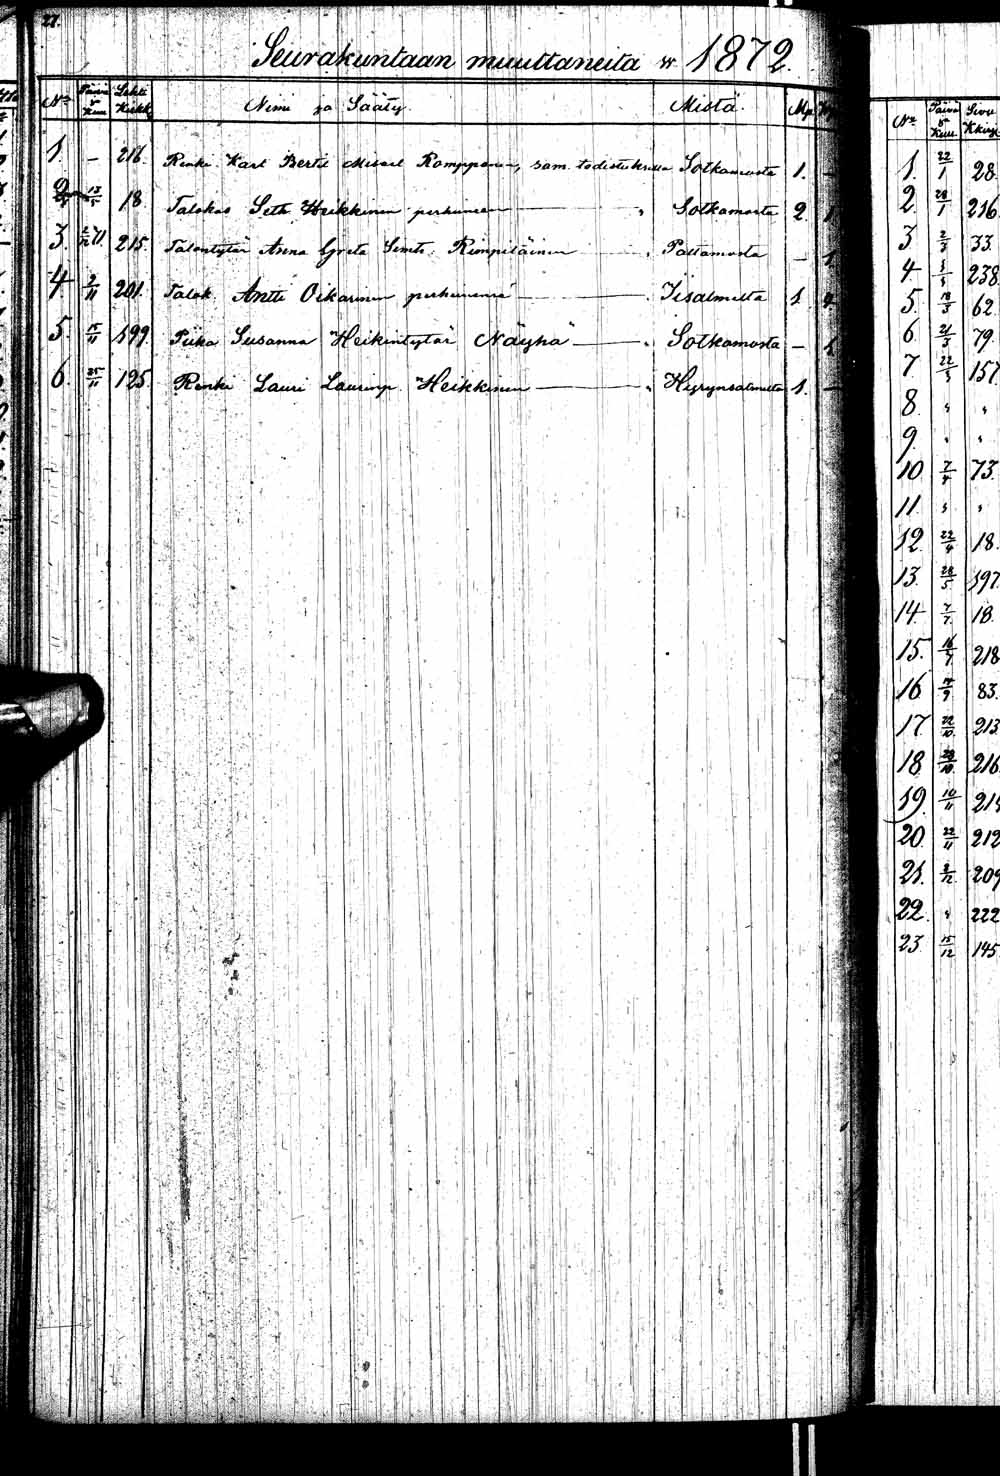 27.
Seurakuntaan muuttaneita v. 1872.
No Päivä & Kuu Lehti Kirkk. Nimi ja Sääty. Mistä. Mp.
1. – 216. Renki Karl Bertil Romppanen, sam. todistuksella Sotkamosta 1. –
2. 13/5 18. Talokas Seth Heikkinen perheineen " Sotkamosta 2. 1.
3. 215. Talontytär Anna Greta SimTr. Rimpiläinen " Paltamosta – 1.
4. 2/11 201. Talok. Antti Oikarinen perheinensä " Iisalmelta 1. 2.
5. 15/11 199. Piika Susanna Heikintytär Näykä " Sotkamosta – 1.
6. 25/11 125. Renki Lauri Laurinp. Heikkinen " Hyrynsalmelta 1. –
No Päivä & Kuu Sivu Kkirj.
1. 22/1 28.
2. 28/1 216.
3 2/3 33.
4 238.
5. 18/3 62.
6 21/3 79.
7 22/3 157.
8 " "
9. " "
10 7/4 73.
11 " "
12. 22/4 18.
13. 28/5 197.
14 7/7 18.
15. 218
16 83.
17 22/10 213
18 28/10 216.
19. 10/11
20. 22/11 212
21. 2/12 209
22. " 222
23 15/12 145.